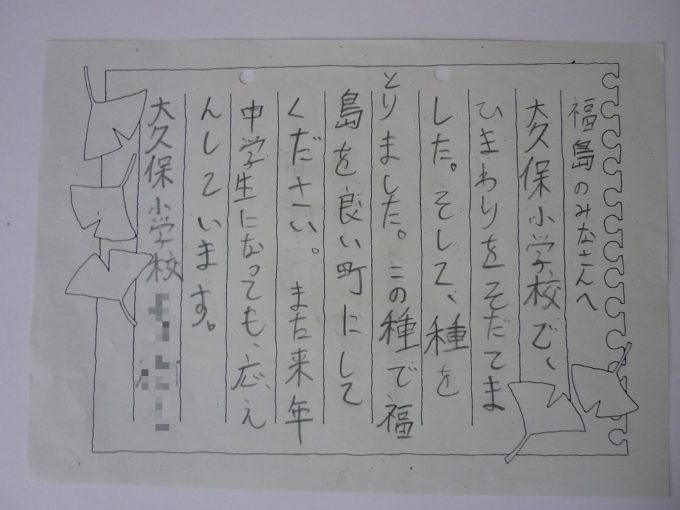 福島のみなさんへ
大久保小学校で、
ひまわりをそだてま
した。そして、種を
とりました。この種で福
島を良い町にして
ください。また来年
中学生になっても、応え
んしています。
大久保小学校